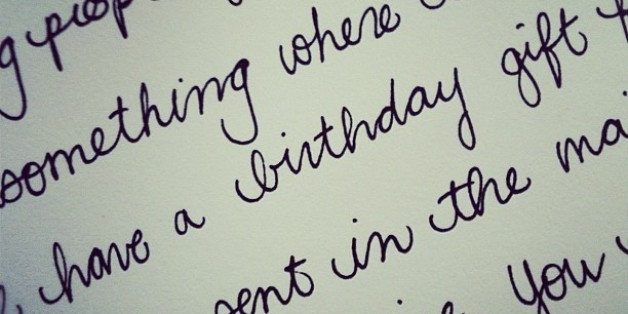 something where
have a birthday gift
sent in the
you